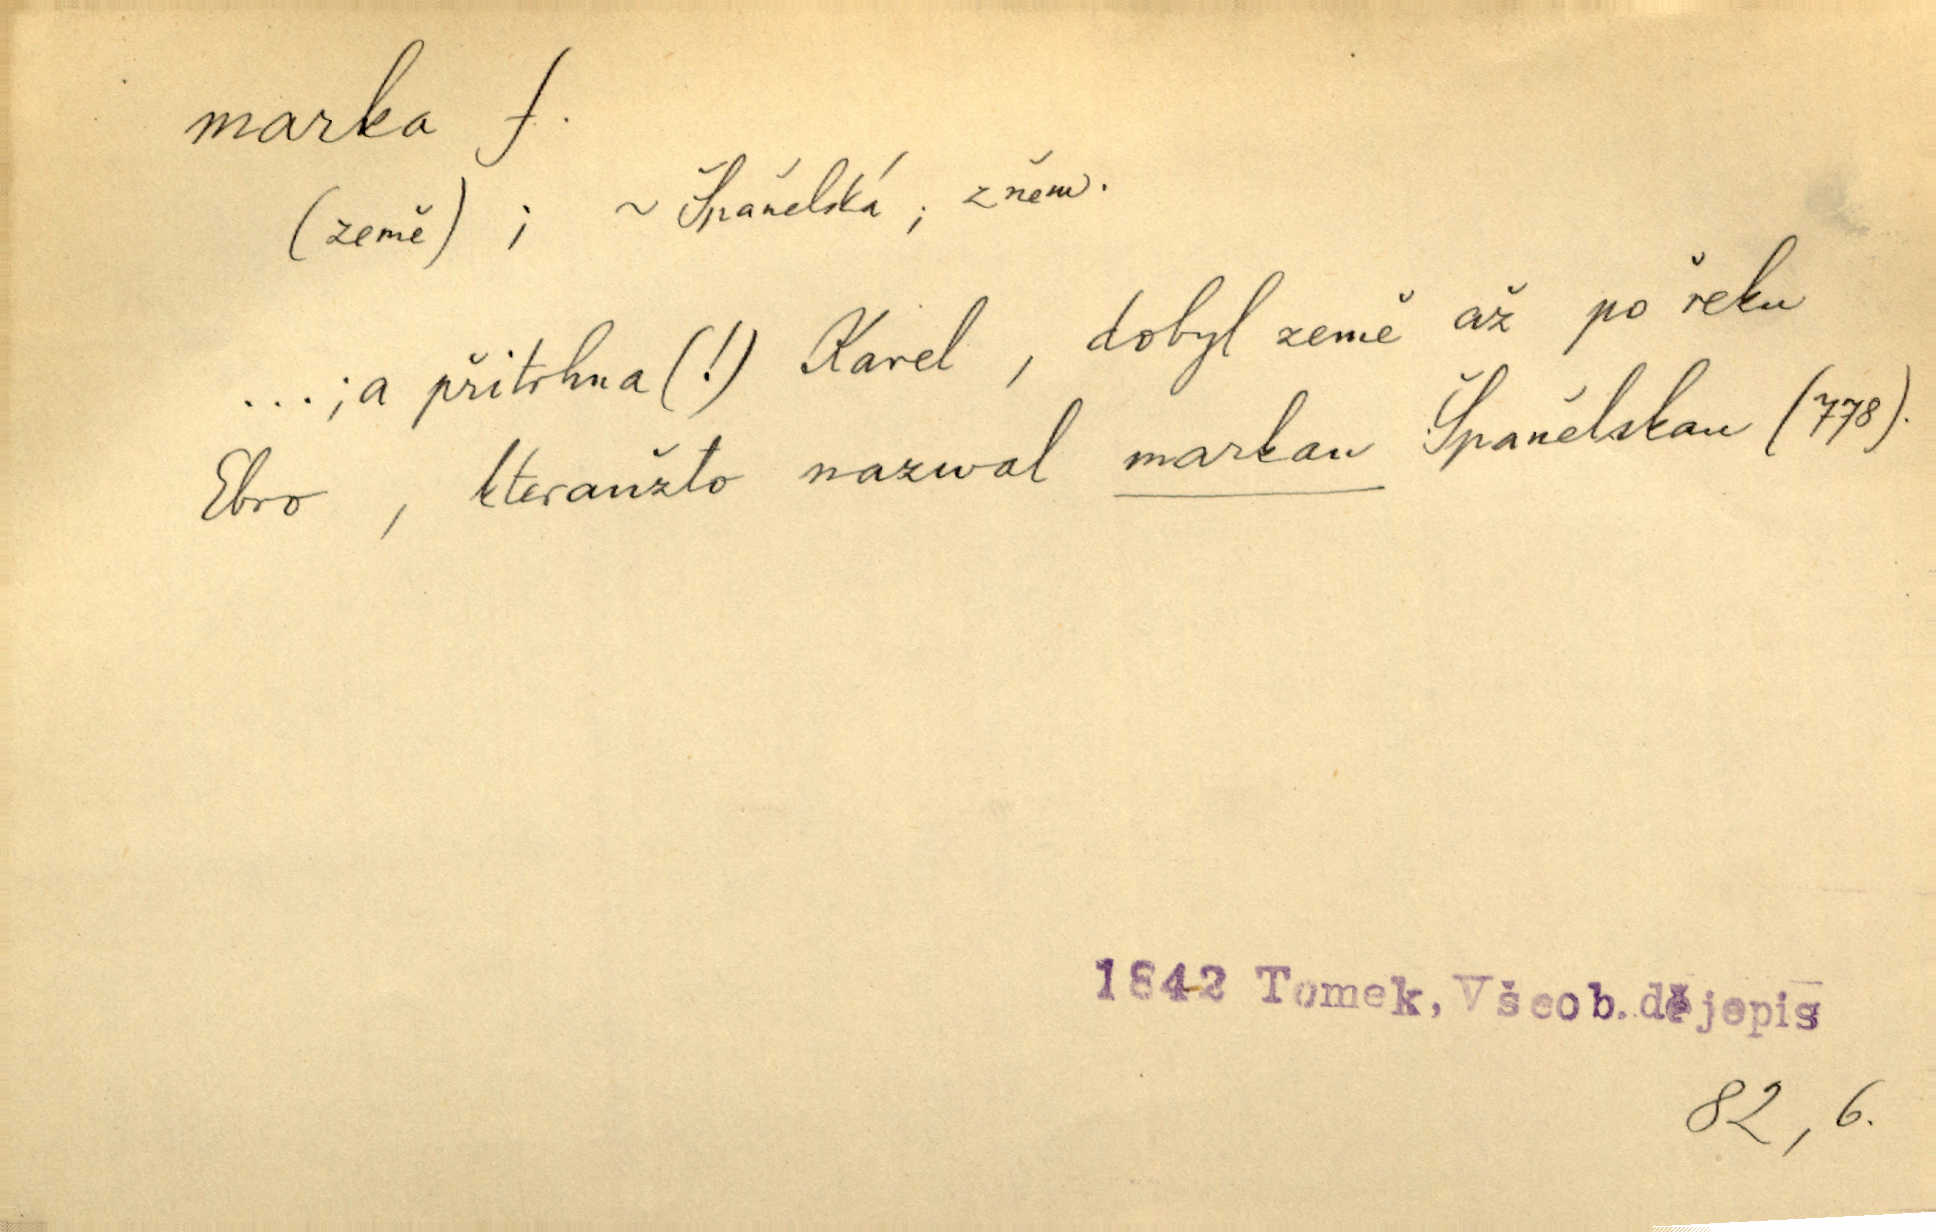 marka f.
(země) ; ~ Španělská ; z něm.
...; a přitrhna (!) Karel , dobyl země až po řeku
Ebro , kteraužto nazwal markau Španělskau (778).
1842 Tomek, Všeob. dějepis
82, 6.